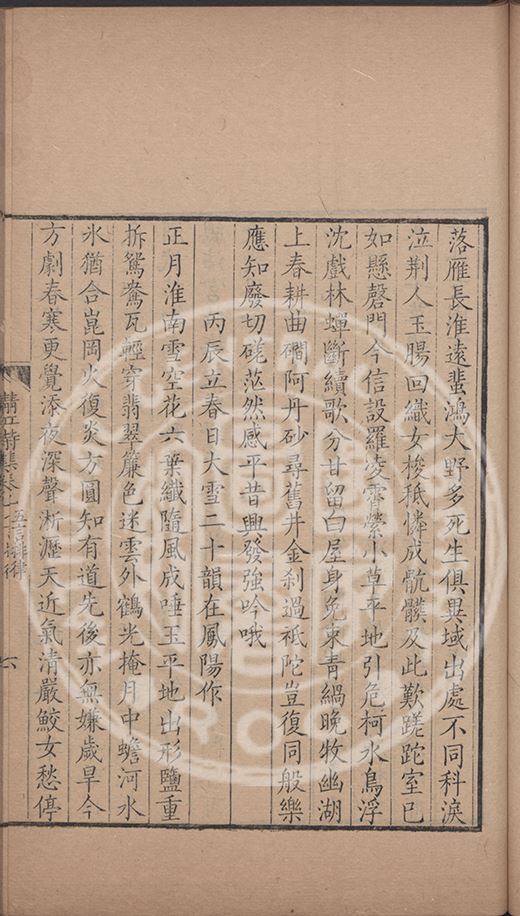 落雁長淮遠蜚鴻大野多死生俱異域出處不同科淚
泣荆人玉腸回織女梭秪憐成骯髒及此歎蹉跎室已
如懸磬門今信設羅凌霄縈小草平地引危柯水鳥浮
沈戲林蟬斷續歌分甘留白屋身免束青緺晚牧幽湖
上春耕曲磵阿丹砂尋舊井金刹過祗陀豈復同般樂
應知廢切磋茫然感平昔興發強吟哦
丙辰立春日大雪二十韻在鳳陽作
正月淮南雪空花六葉纖隨風成唾玉平地出形鹽重
拆鴛鴦瓦輕穿翡翠簾色迷雲外鶴光掩月中蟾河水
氷猶合崑岡火復炎方圓知有道先後亦無嫌歲旱今
方劇春寒更覺添夜深聲淅瀝天近氣清嚴鮫女愁停
詩集卷七 五言排律